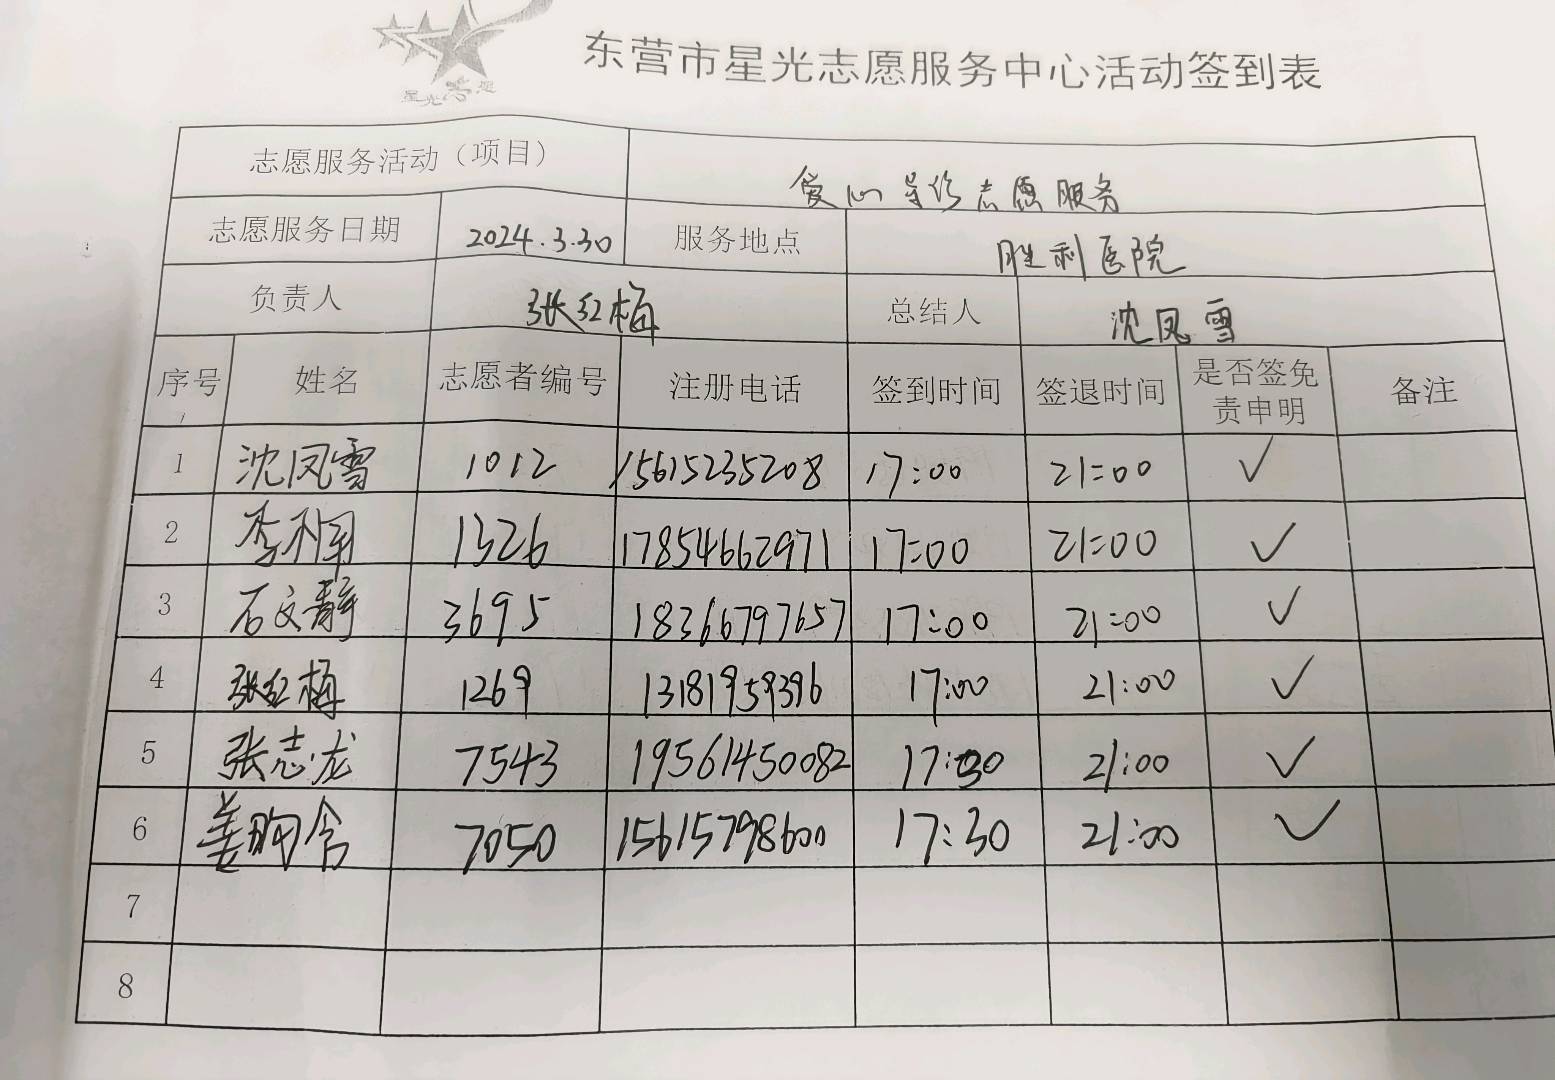 星光志愿
东营市星光志愿服务中心活动签到表
志愿服务活动（项目） 爱心导诊志愿服务
志愿服务日期 2024.3.30 服务地点 胜利医院
负责人 张红梅 总结人 沈凤雪
序号 姓名 志愿者编号 注册电话 签到时间 签退时间 是否签免责申明 备注
1 沈凤雪 1012 15615235208 17:00 21:00 ✓
2 李利军 1326 17854662971 17:00 21:00 ✓
3 石文静 3695 18366797657 17:00 21:00 ✓
4 张红梅 1269 13181959396 17:00 21:00 ✓
5 张志龙 7543 19561450082 17:30 21:00 ✓
6 姜朐含 7050 15615798600 17:30 21:00 ✓
7
8